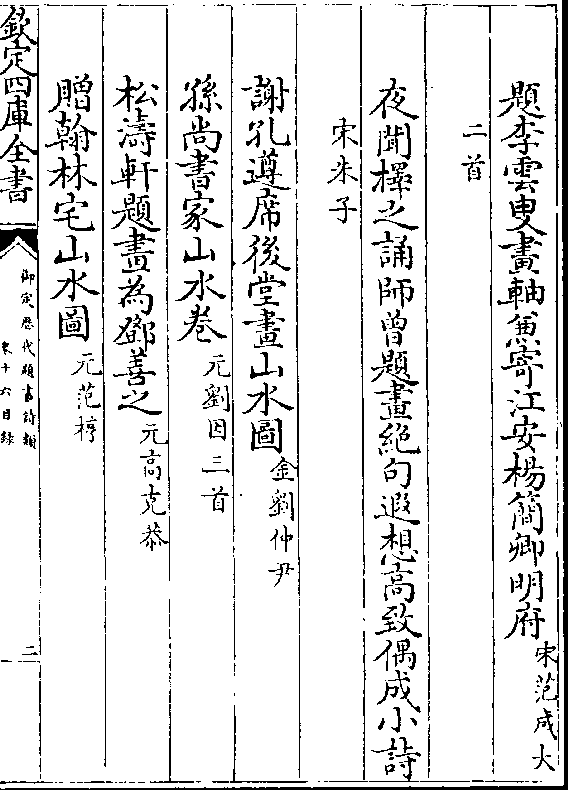 題李雲叟畫軸兼寄江安楊簡卿明府宋范成大
二首
夜聞擇之誦師曾題畫絶句遐想高致偶成小詩
宋朱子
謝孔遵席後堂畫山水圖金劉仲尹
孫尚書家山水卷元劉因三首
松濤軒題畫為鄧善之元高克恭
贈翰林宅山水圖元范梈
欽定四庫全書
御定歷代題畫詩類
卷十六目錄
二